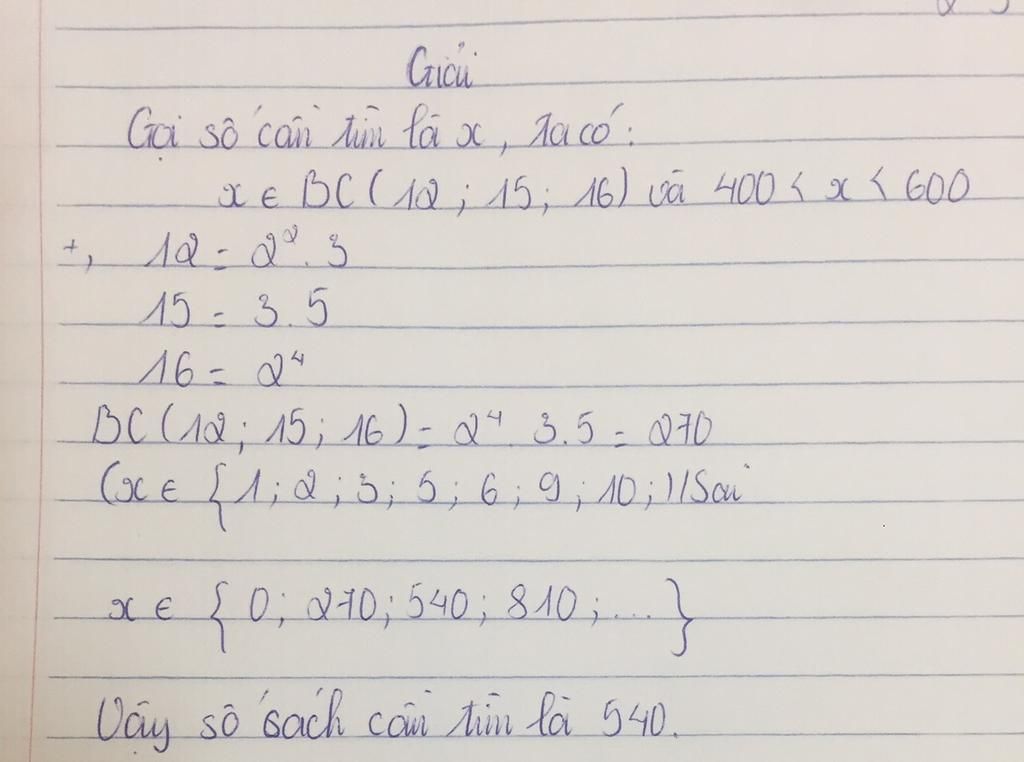 Giải
Gọi số cần tìm là x, Ta có:
x ∈ BC(12; 15; 16) và 400 < x < 600
+, 12 = 2². 3
15 = 3. 5
16 = 2⁴
BC(12; 15; 16) = 2⁴. 3. 5 = 270
(x ∈ { 1; 2; 3; 5; 6; 9; 10; )//Sai
x ∈ { 0; 270; 540; 810; ... }
Vậy số sách cần tìm là 540.